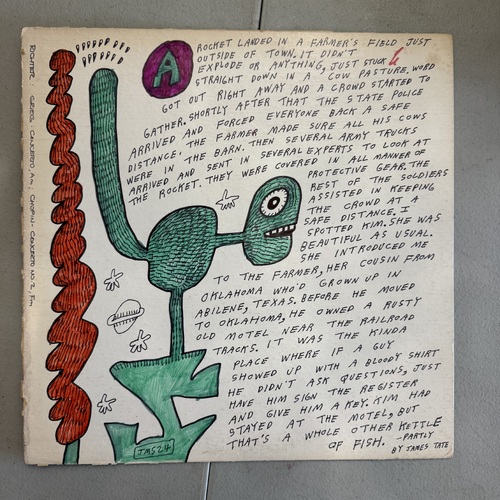 A ROCKET LANDED IN A FARMER'S FIELD JUST
OUTSIDE OF TOWN. IT DIDN'T
EXPLODE OR ANYTHING, JUST STUCK
STRAIGHT DOWN IN A COW PASTURE. WORD
GOT OUT RIGHT AWAY AND A CROWD STARTED TO
GATHER. SHORTLY AFTER THAT THE STATE POLICE
ARRIVED AND FORCED EVERYONE BACK A SAFE
DISTANCE. THE FARMER MADE SURE ALL HIS COWS
WERE IN THE BARN. THEN SEVERAL ARMY TRUCKS
ARRIVED AND SENT IN SEVERAL EXPERTS TO LOOK AT
THE ROCKET. THEY WERE COVERED IN ALL MANNER OF
PROTECTIVE GEAR. THE
REST OF THE SOLDIERS
ASSISTED IN KEEPING
THE CROWD AT A
SAFE DISTANCE. I
SPOTTED KIM. SHE WAS
BEAUTIFUL AS USUAL.
SHE INTRODUCED ME
TO THE FARMER, HER COUSIN FROM
OKLAHOMA WHO'D GROWN UP IN
ABILENE, TEXAS. BEFORE HE MOVED
TO OKLAHOMA, HE OWNED A RUSTY
OLD MOTEL NEAR THE RAILROAD
TRACKS. IT WAS THE KINDA
PLACE WHERE IF A GUY
SHOWED UP WITH A BLOODY SHIRT
HE DIDN'T ASK QUESTIONS, JUST
HAVE HIM SIGN THE REGISTER
AND GIVE HIM A KEY. KIM HAD
STAYED AT THE MOTEL, BUT
THAT'S A WHOLE OTHER KETTLE
OF FISH. -PARTLY
BY JAMES TATE
JMS24
RICHTER: GRIEG, CONCERTO, Am, CHOPIN-CONCERTO NO. 2, Fm